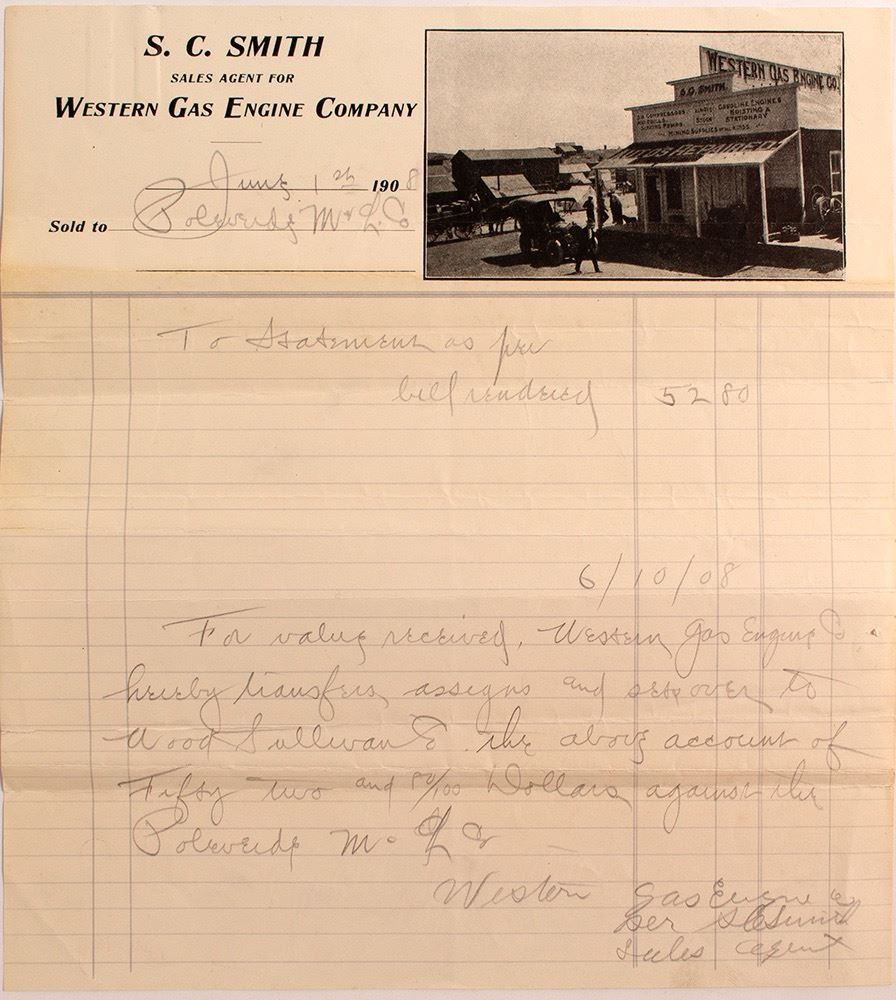 S. C. SMITH
SALES AGENT FOR
WESTERN GAS ENGINE COMPANY
June 1st 1908
Sold to M & L Co
WESTERN GAS ENGINE CO.
S.C. SMITH.
AIR COMPRESSORS GASOLINE ENGINES
HOISTING &
SINKING PUMPS. STOCK STATIONARY
MINING SUPPLIES OF ALL KINDS
AUTOS REPAIRED
To Statement as per
bill rendered 52 80
6/10/08
For value received, Western Gas Engine Co
hereby transfers, assigns and sets over to
Wood Sullivan Co the above account of
Fifty two and 80/100 Dollars against the
M & L Co
Western Gas Engine Co
Per S C Smith
Sales Agent